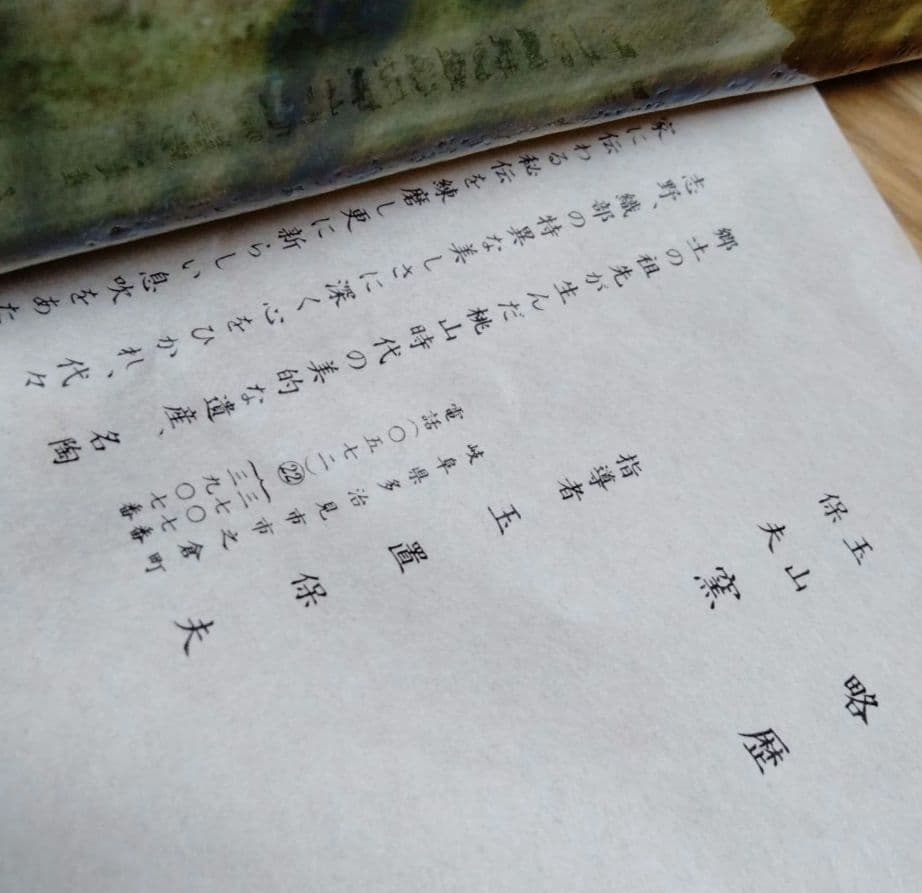 玉山窯
保夫
略歴
指導者
玉置保夫
岐阜県多治見市市之倉町
電話(〇五七二)㉒
三七〇七番
三九〇七番
郷土の祖先が生んだ桃山時代の美的な遺産、名陶
志野、織部の特異な美しさに深く心をひかれ、代々
家に伝わる秘伝を練磨し更に新らしい息吹をあた